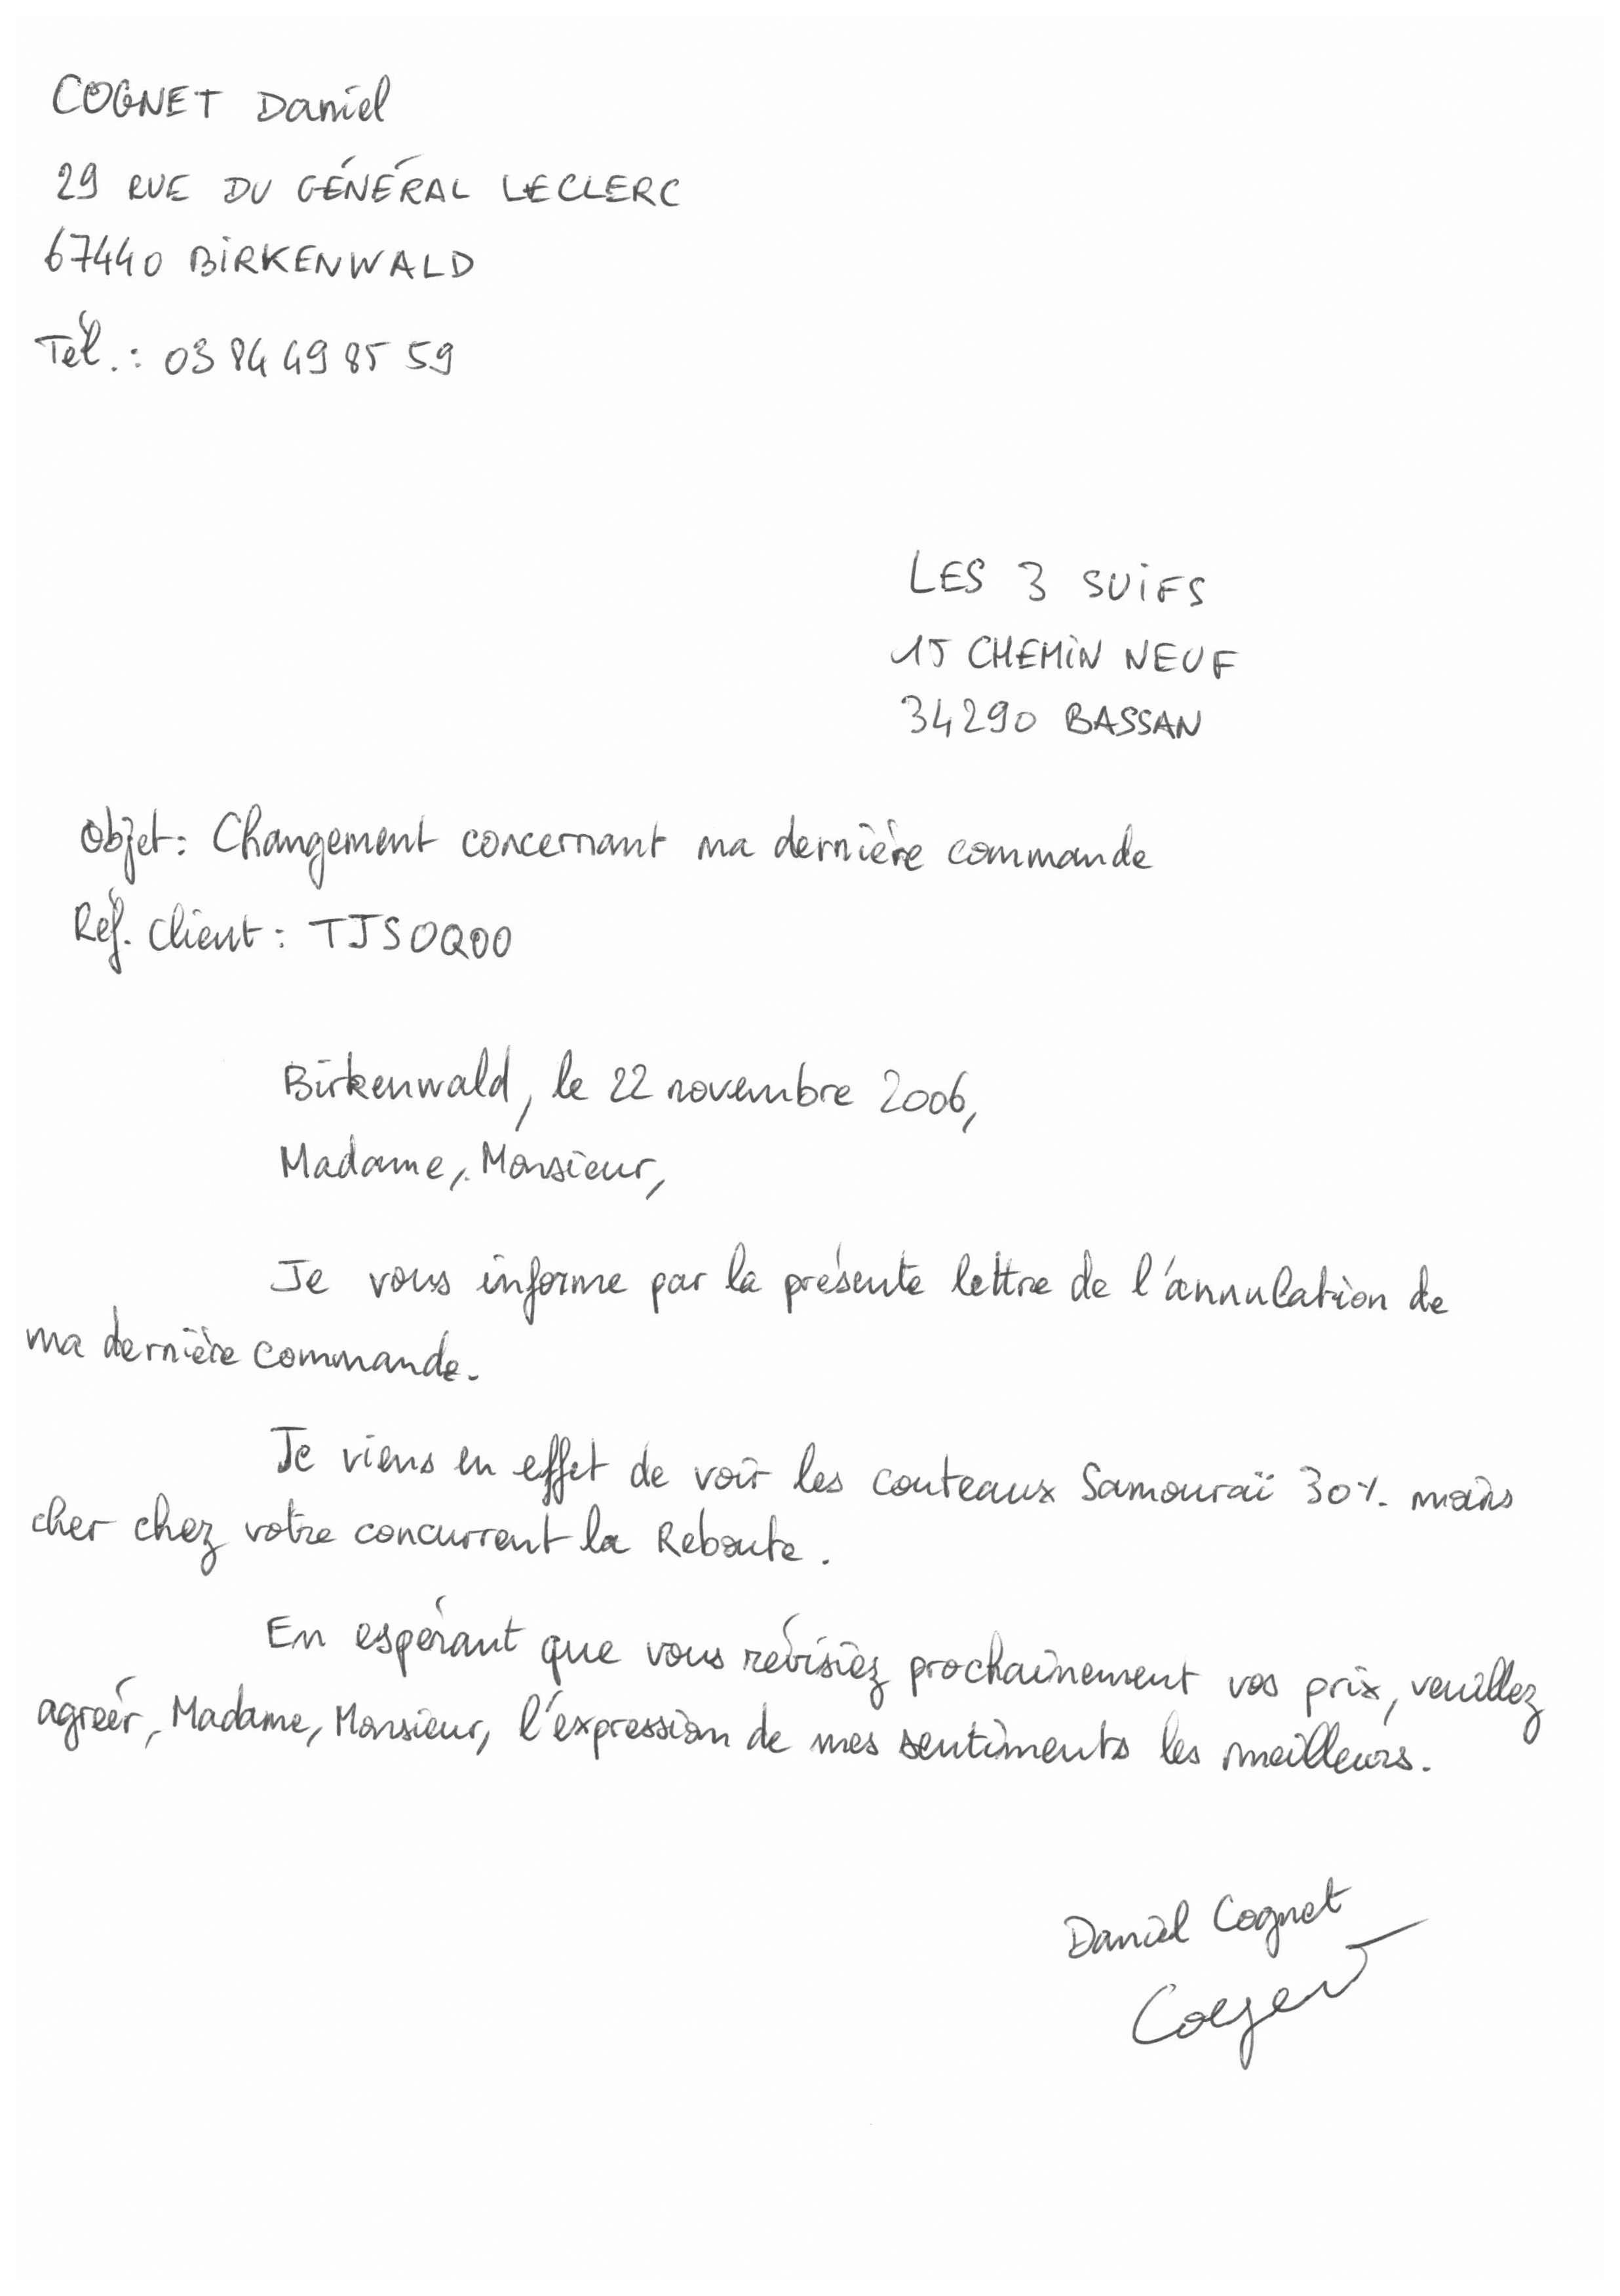 COGNET Daniel
29 RUE DU GÉNÉRAL LECLERC
67440 BIRKENWALD
Tél.: 03 84 49 85 59
LES 3 SUIFS
15 CHEMIN NEUF
34290 BASSAN
Objet: Changement concernant ma dernière commande
Réf. Client: TJSOQ00
Birkenwald, le 22 novembre 2006,
Madame, Monsieur,
Je vous informe par la présente lettre de l'annulation de
ma dernière commande.
Je viens en effet de voir les couteaux Samouraï 30% moins
cher chez votre concurrent la Reboute.
En espérant que vous révisiez prochainement vos prix, veuillez
agréer, Madame, Monsieur, l'expression de mes sentiments les meilleurs.
Daniel Cognet